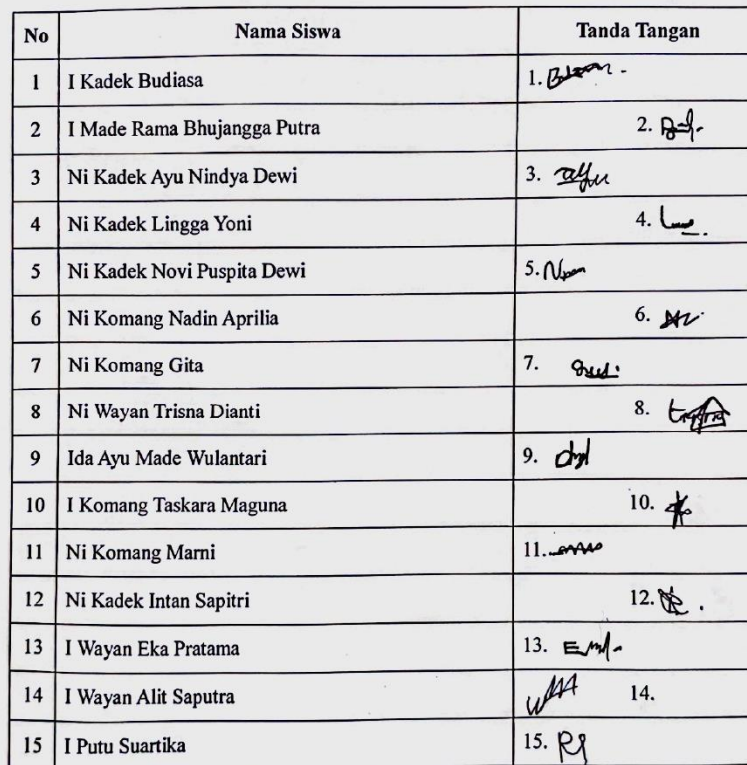 No Nama Siswa Tanda Tangan
1 I Kadek Budiasa 1.
2 I Made Rama Bhujangga Putra 2.
3 Ni Kadek Ayu Nindya Dewi 3.
4 Ni Kadek Lingga Yoni 4.
5 Ni Kadek Novi Puspita Dewi 5.
6 Ni Komang Nadin Aprilia 6.
7 Ni Komang Gita 7.
8 Ni Wayan Trisna Dianti 8.
9 Ida Ayu Made Wulantari 9.
10 I Komang Taskara Maguna 10.
11 Ni Komang Marni 11.
12 Ni Kadek Intan Sapitri 12.
13 I Wayan Eka Pratama 13.
14 I Wayan Alit Saputra 14.
15 I Putu Suartika 15.